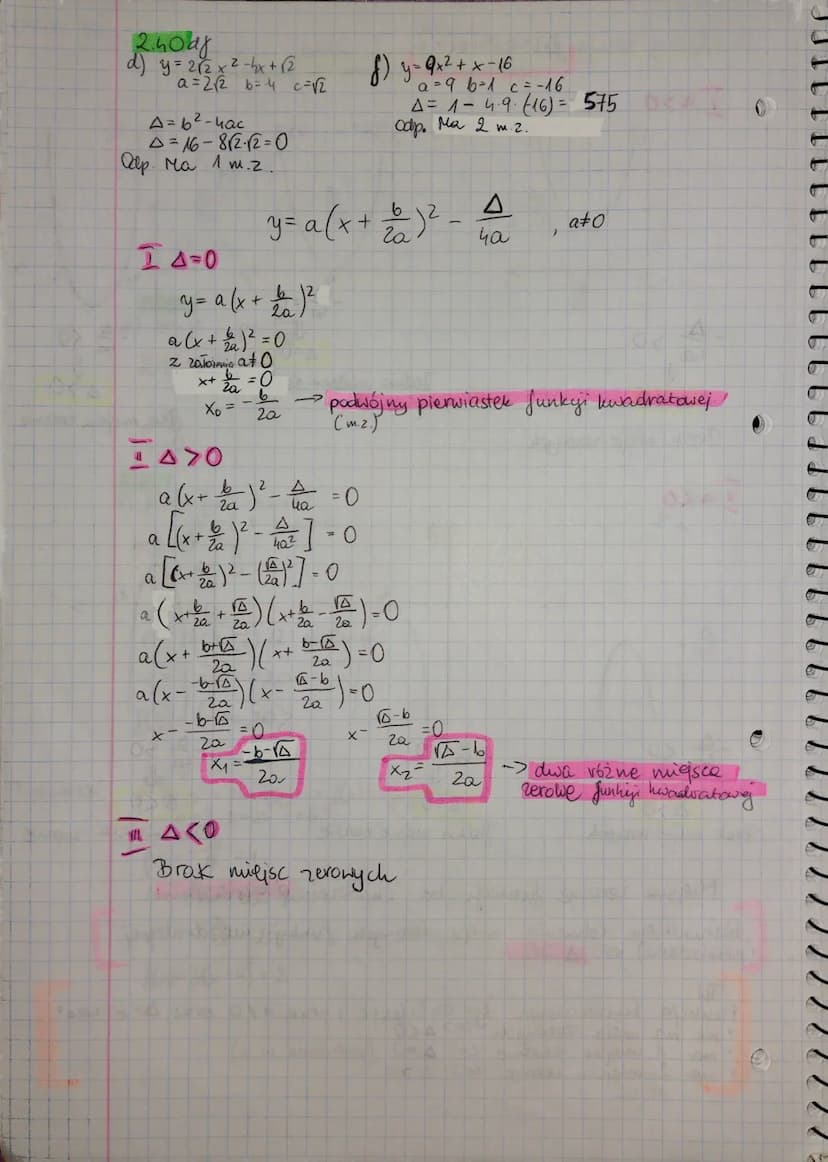 2.40df
d) y = 2√2 x² - 4x + √2
a = 2√2 b = 4 c = √2
Δ = b² - 4ac
Δ = 16 - 8√2·√2 = 0
Odp. Ma 1 m.z.
f) y = 9x² + x - 16
a = 9 b = 1 c = -16
Δ = 1 - 4·9·(-16) = 575
Odp. Ma 2 m.z.
y = a(x + b/2a)² - Δ/4a , a≠0
I Δ=0
y = a(x + b/2a)²
a(x + b/2a)² = 0
z założenia a≠0
x + b/2a = 0
x₀ = -b/2a → podwójny pierwiastek funkcji kwadratowej
(m.z.)
II Δ>0
a(x + b/2a)² - Δ/4a = 0
a[(x + b/2a)² - Δ/4a²] = 0
a[(x + b/2a)² - (√Δ/2a)²] = 0
a(x + b/2a + √Δ/2a)(x + b/2a - √Δ/2a) = 0
a(x + b+√Δ/2a)(x + b-√Δ/2a) = 0
a(x - -b-√Δ/2a)(x - √Δ-b/2a) = 0
x - -b-√Δ/2a = 0 x - √Δ-b/2a = 0
x₁ = -b-√Δ/2a x₂ = √Δ-b/2a → dwa różne miejsca
zerowe funkcji kwadratowej
III Δ<0
Brak miejsc zerowych